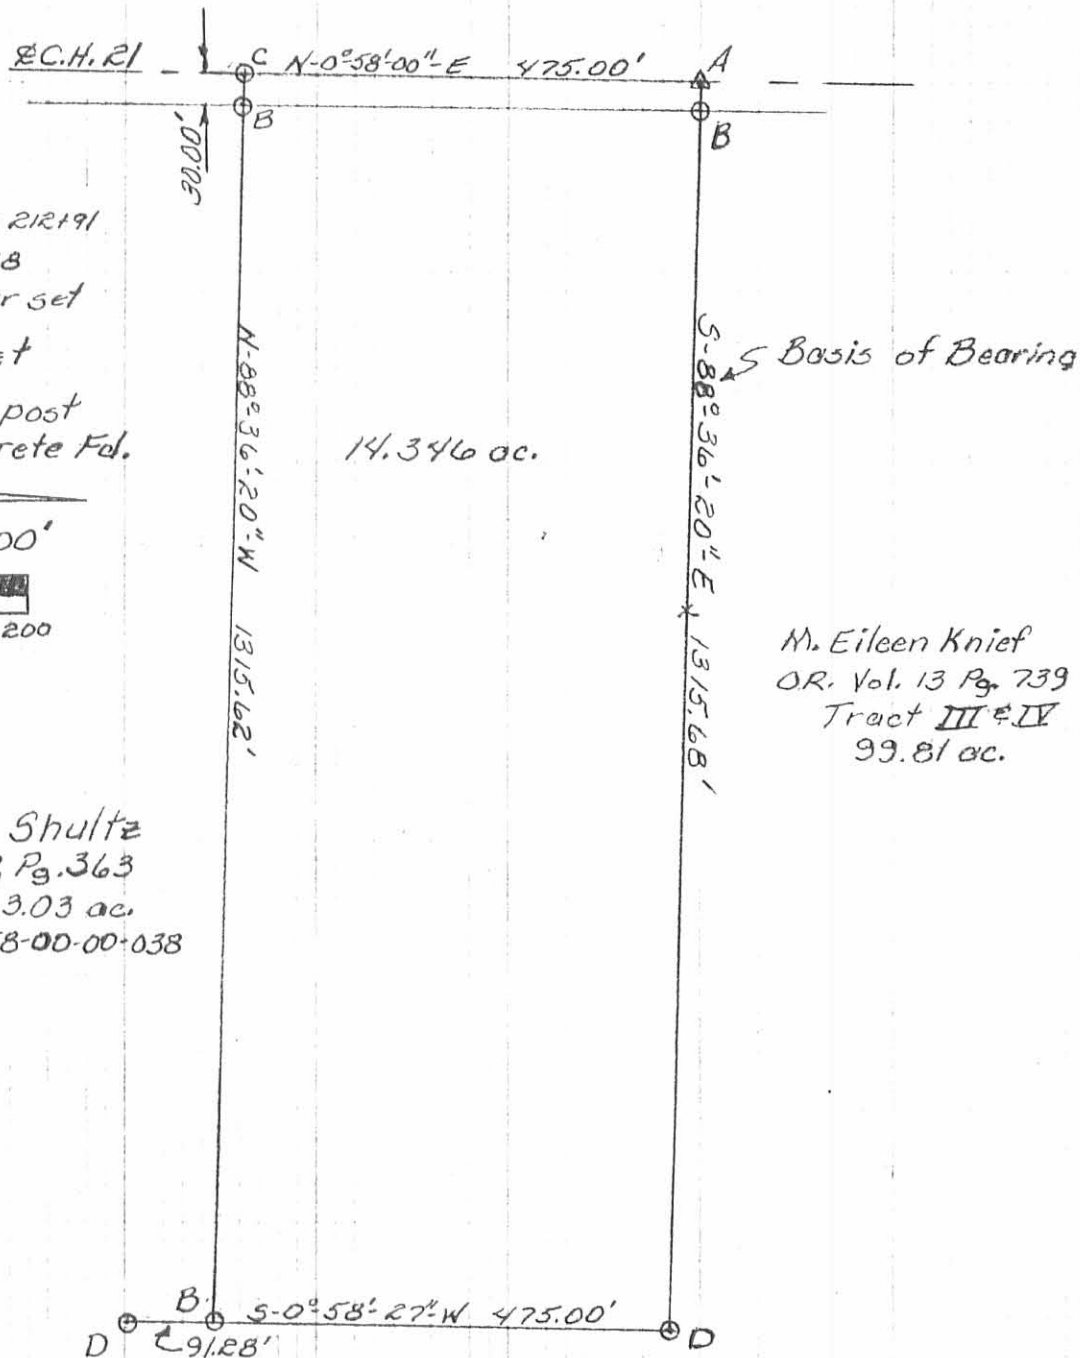 ℄ C.H. 21
C N-0°58'-00"-E 475.00' A
B
B
30.00'
212+91
8
r set
t
post
rete Fd.
00'
200
N-88°-36'-20"-W 1315.62'
14.346 ac.
S-88°-36'-20"-E 1315.68'
Basis of Bearing
M. Eileen Knief
O.R. Vol. 13 Pg. 739
Tract III & IV
99.81 ac.
Shultz
Pg. 363
3.03 ac.
8-00-00-038
B S-0°-58'-27"-W 475.00'
D 91.28' D